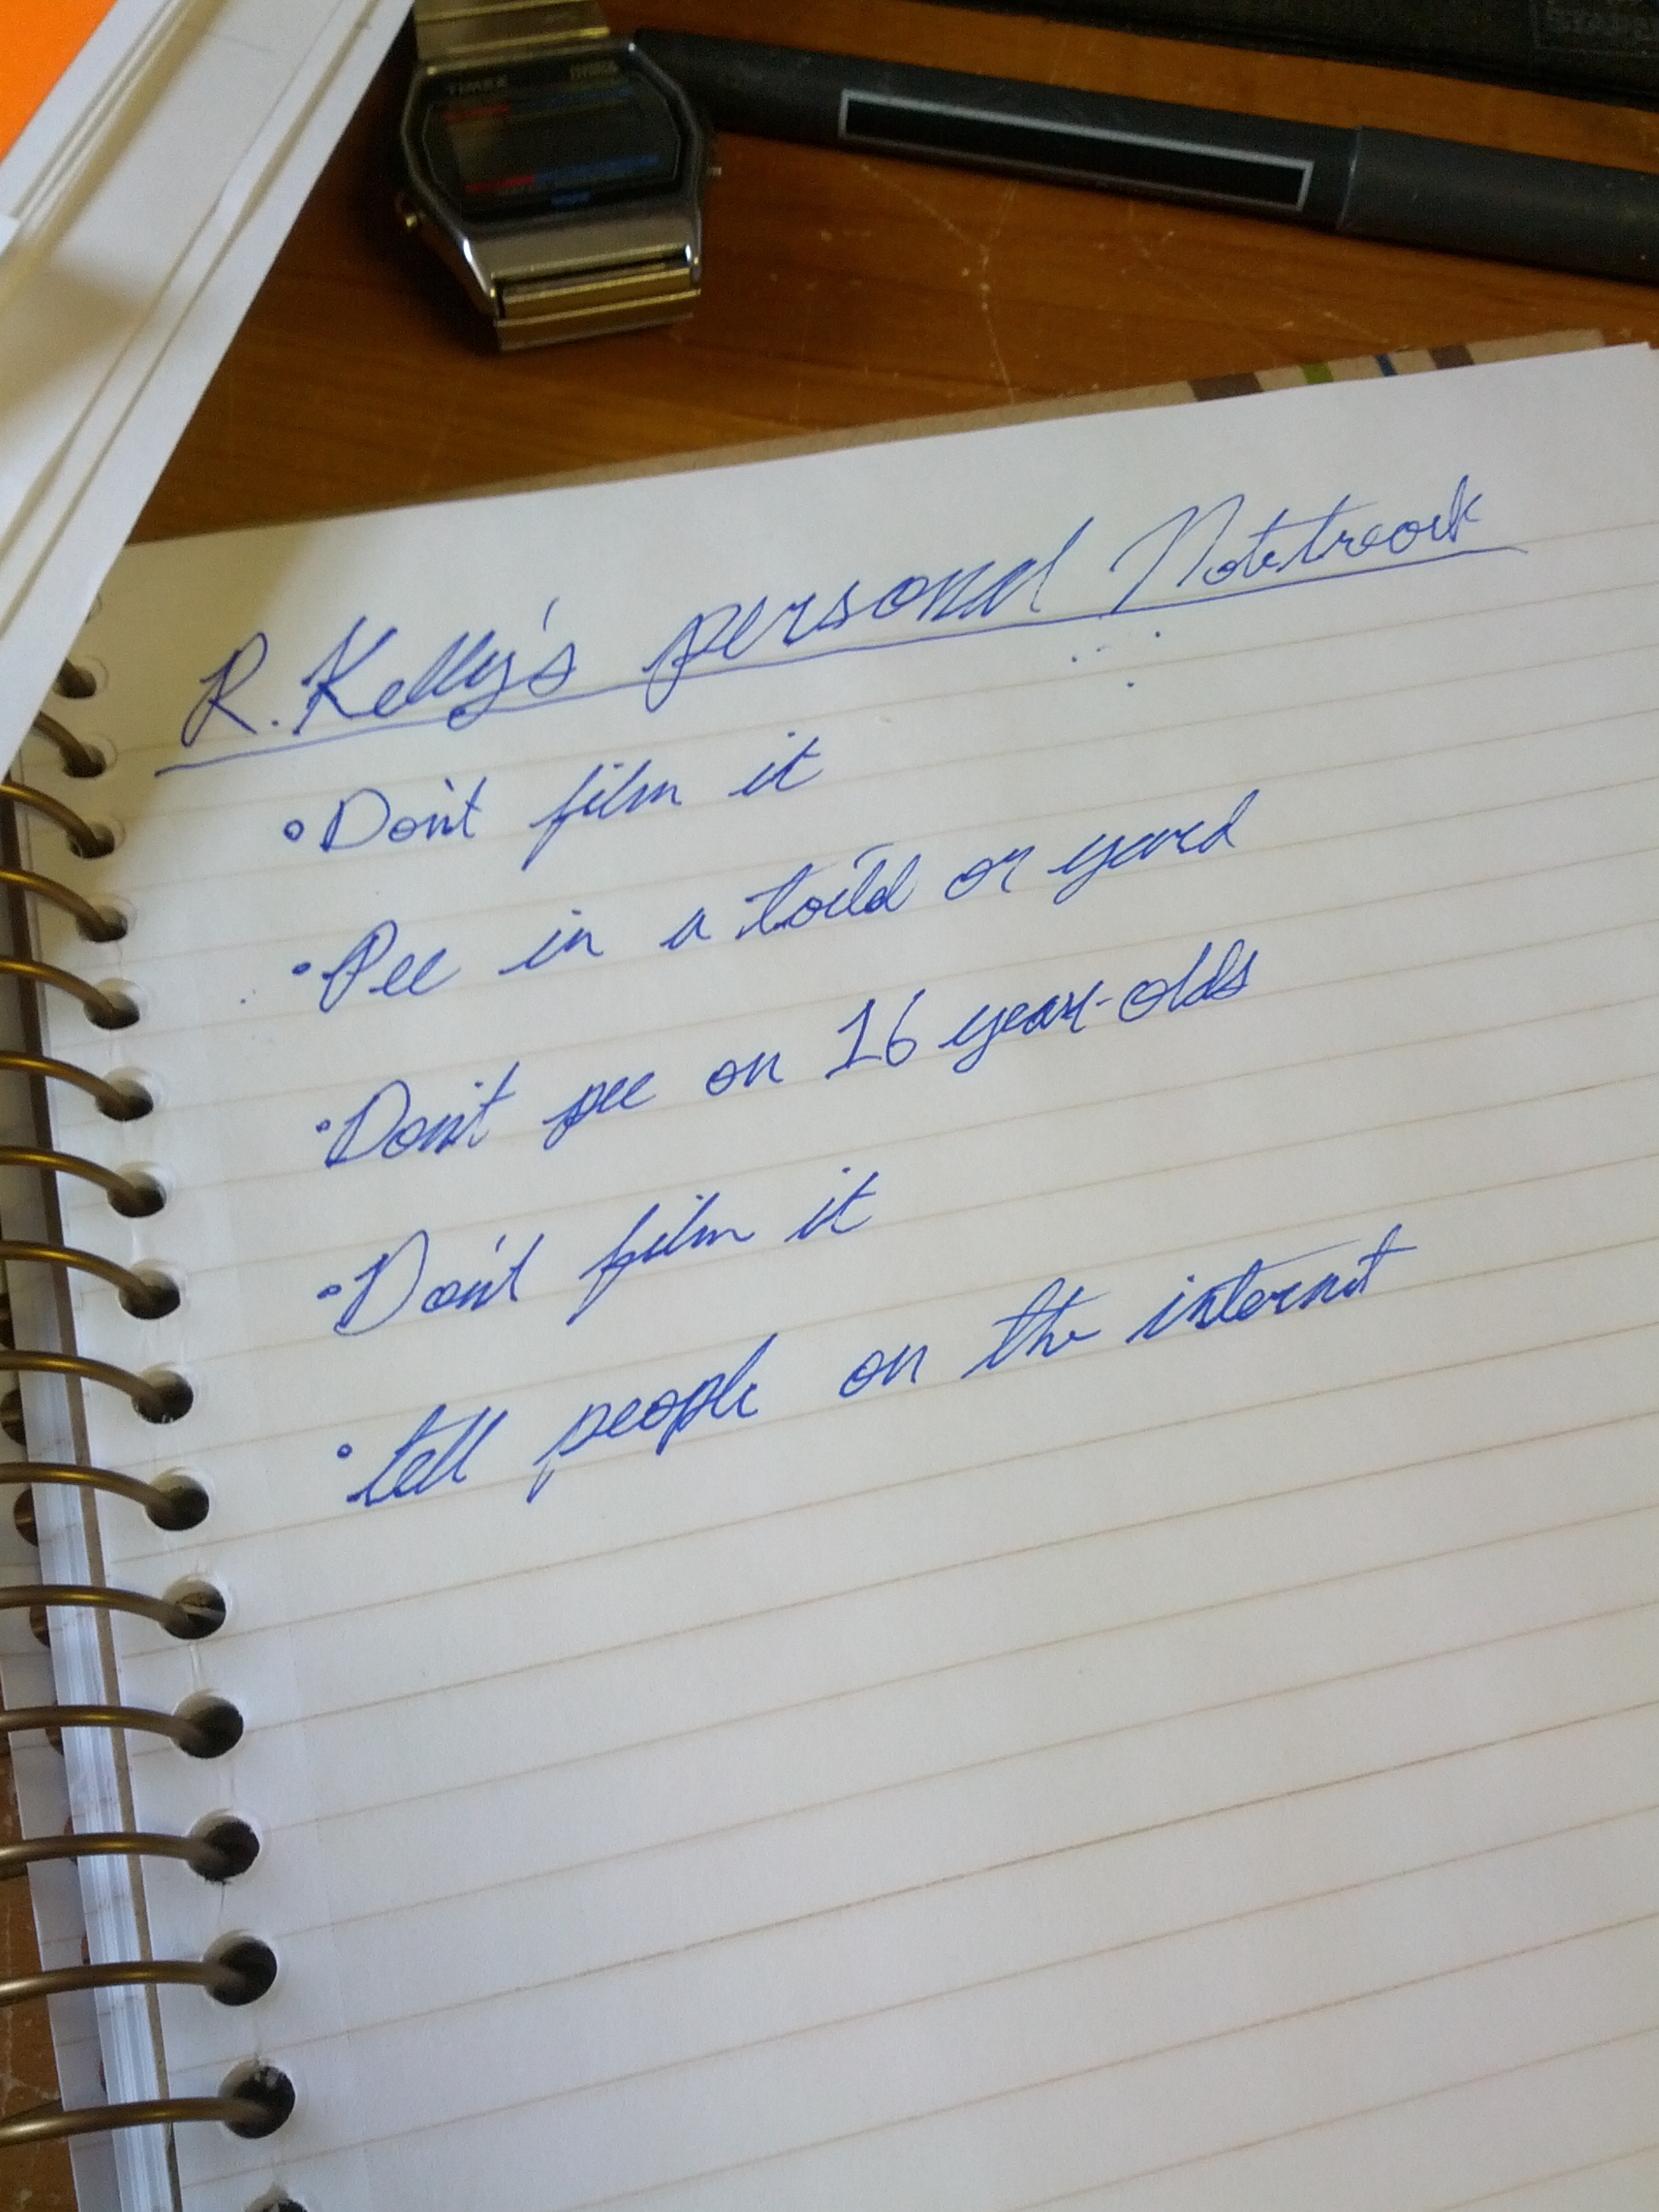 TIMEX
R. Kelly's personal Notebook
• Don't film it
• Pee in a toilet or yard
• Don't pee on 16 year-olds
• Don't film it
• tell people on the internet